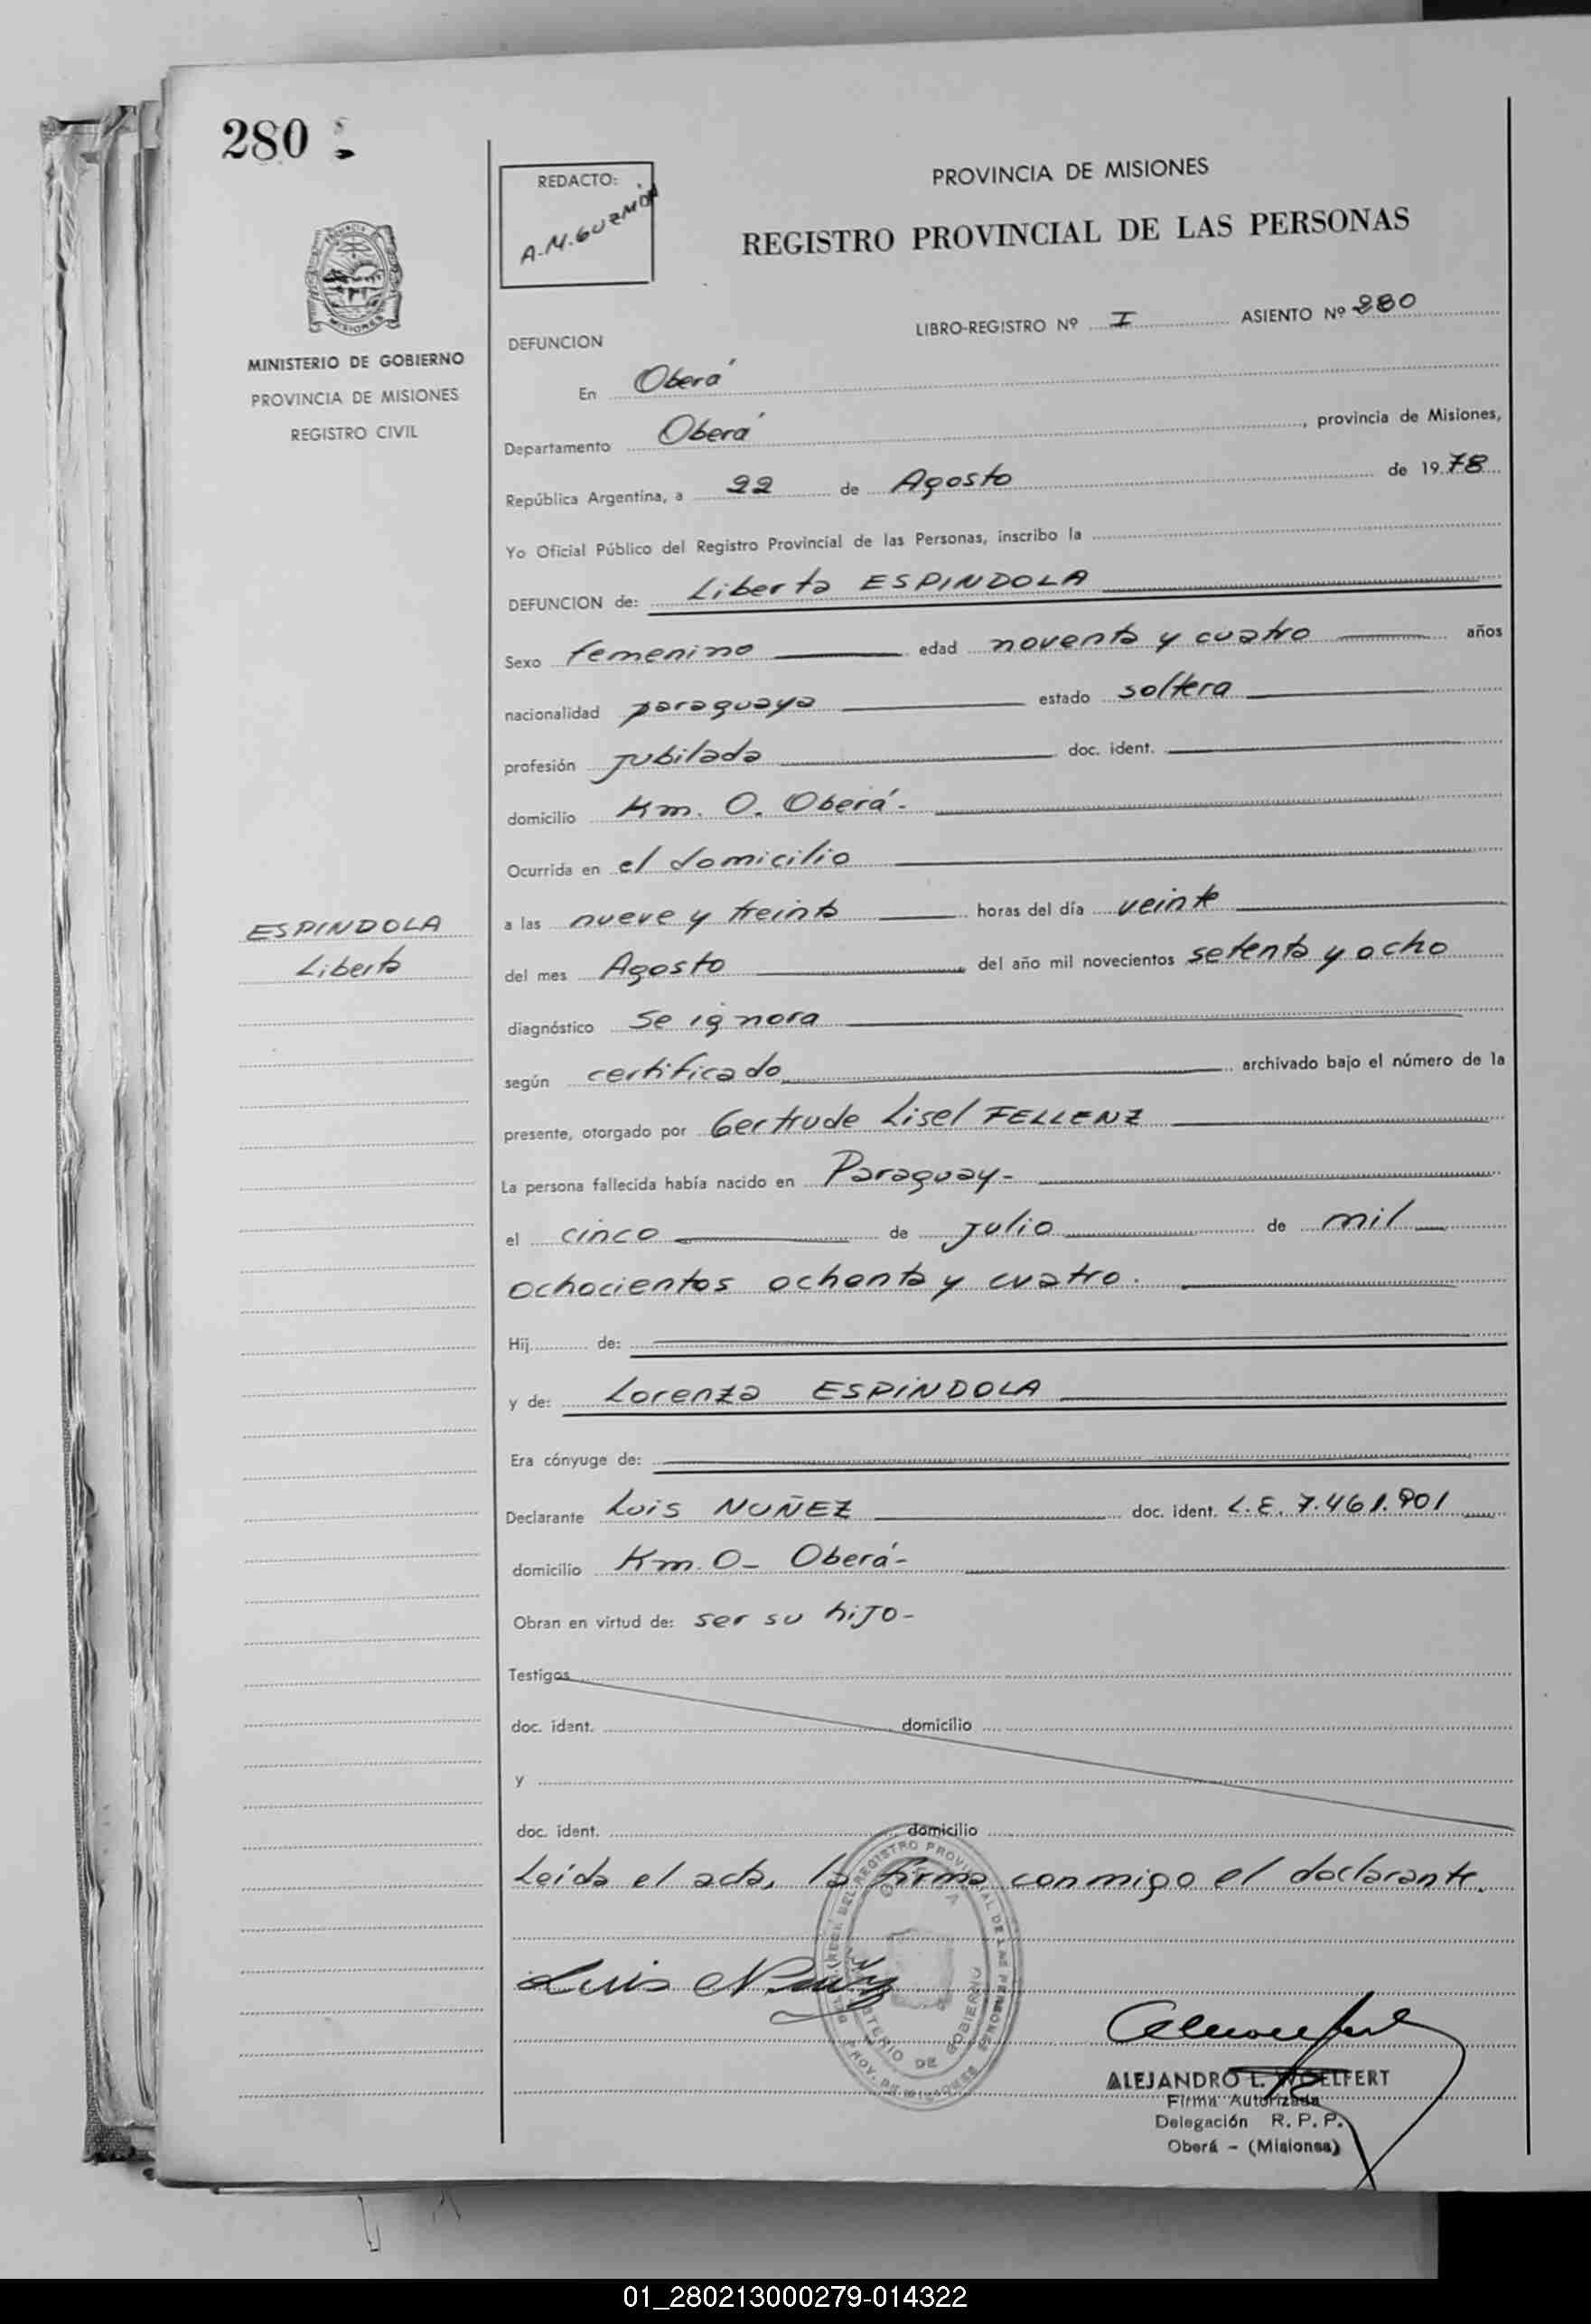 280
REDACTO:
A.M. GUZMÓN
PROVINCIA DE MISIONES
REGISTRO PROVINCIAL DE LAS PERSONAS
MISIONES
MINISTERIO DE GOBIERNO
PROVINCIA DE MISIONES
REGISTRO CIVIL
LIBRO-REGISTRO Nº I ASIENTO Nº 280
DEFUNCION
En Oberá
Departamento Oberá, provincia de Misiones,
República Argentina, a 22 de Agosto de 1978
Yo Oficial Público del Registro Provincial de las Personas, inscribo la
DEFUNCION de: Liberta ESPINDOLA
Sexo femenino edad noventa y cuatro años
nacionalidad paraguaya estado soltera
profesión jubilada doc. ident.
domicilio Km. 0. Oberá-
Ocurrida en el domicilio
ESPINDOLA
Liberta
a las nueve y treinta horas del día veinte
del mes Agosto del año mil novecientos setenta y ocho
diagnóstico se ignora
según certificado archivado bajo el número de la
presente, otorgado por Gertrude Lisel FELLENZ
La persona fallecida había nacido en Paraguay-
el cinco de julio de mil
ochocientos ochenta y cuatro.
Hij de:
y de: Lorenza ESPINDOLA
Era cónyuge de:
Declarante Luis NUÑEZ doc. ident. L.E. 7.461.901
domicilio Km. 0- Oberá-
Obran en virtud de: ser su hijo-
Testigos
doc. ident. domicilio
y
doc. ident. domicilio
Leida el acta, la firma conmigo el declarante.
Luis Nuñez
ALEJANDRO L. WOELFERT
Firma Autorizada
Delegación R. P. P.
Oberá - (Misiones)
01_280213000279-014322